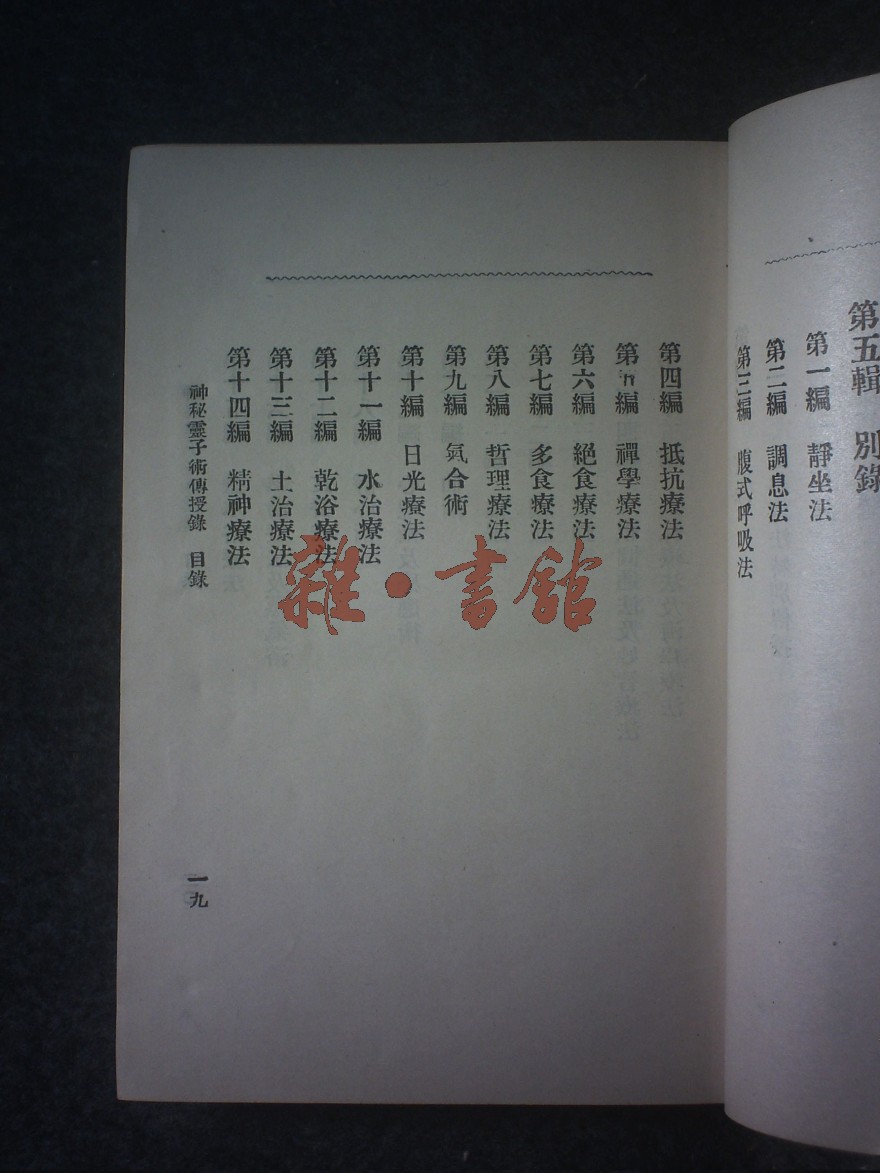 第五輯 別錄
第一編 靜坐法
第二編 調息法
第三編 腹式呼吸法
第四編 抵抗療法
第五編 禪學療法
第六編 絕食療法
第七編 多食療法
第八編 哲理療法
第九編 氣合術
第十編 日光療法
第十一編 水治療法
第十二編 乾浴療法
第十三編 土治療法
第十四編 精神療法
神秘靈子術傳授錄 目錄
一九
雜·書館